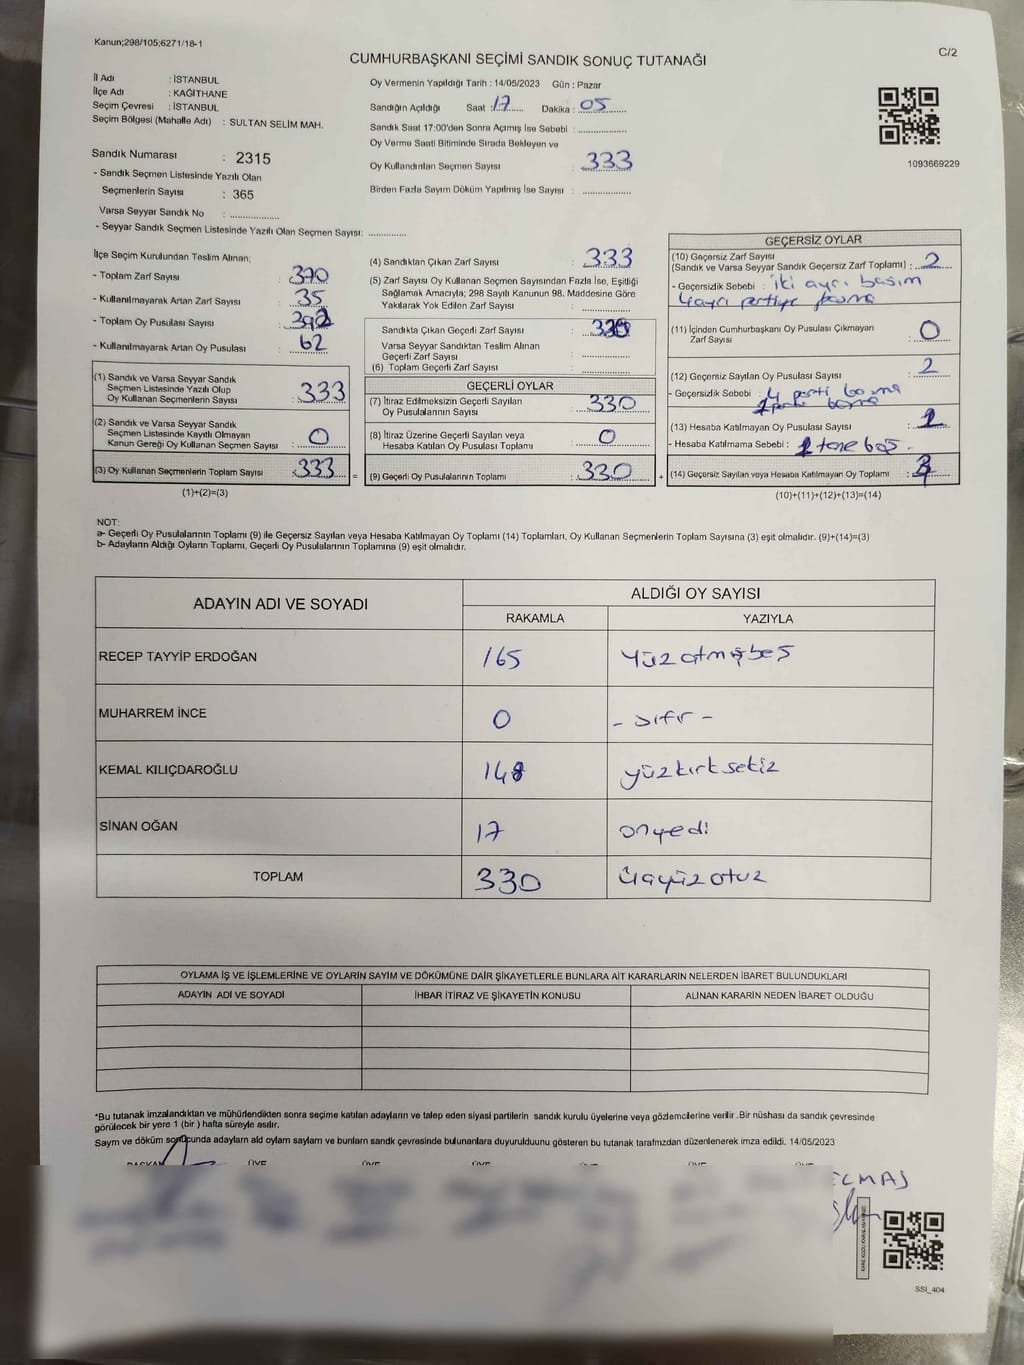 Kanun;298/105;6271/18-1
C/2
CUMHURBAŞKANI SEÇİMİ SANDIK SONUÇ TUTANAĞI
İl Adı : İSTANBUL
İlçe Adı : KAĞITHANE
Seçim Çevresi : İSTANBUL
Seçim Bölgesi (Mahalle Adı) : SULTAN SELİM MAH.
Sandık Numarası : 2315
- Sandık Seçmen Listesinde Yazılı Olan
Seçmenlerin Sayısı : 365
Varsa Seyyar Sandık No : ..............
- Seyyar Sandık Seçmen Listesinde Yazılı Olan Seçmen Sayısı: ............
Oy Vermenin Yapıldığı Tarih : 14/05/2023 Gün : Pazar
Sandığın Açıldığı Saat : 17 Dakika : 05
Sandık Saat 17:00'den Sonra Açımış İse Sebebi : ..............
Oy Verme Saati Bitiminde Sırada Bekleyen ve
Oy Kullandırılan Seçmen Sayısı : 333
Birden Fazla Sayım Döküm Yapılmış İse Sayısı : ..............
1093669229
İlçe Seçim Kurulundan Teslim Alınan;
- Toplam Zarf Sayısı : 370
- Kullanılmayarak Artan Zarf Sayısı : 35
- Toplam Oy Pusulası Sayısı : 392
- Kullanılmayarak Artan Oy Pusulası : 62
(1) Sandık ve Varsa Seyyar Sandık
Seçmen Listesinde Yazılı Olup
Oy Kullanan Seçmenlerin Sayısı : 333
(2) Sandık ve Varsa Seyyar Sandık
Seçmen Listesinde Kayıtlı Olmayan
Kanun Gereği Oy Kullanan Seçmen Sayısı : 0
(3) Oy Kullanan Seçmenlerin Toplam Sayısı : 333 =
(1)+(2)=(3)
(4) Sandıktan Çıkan Zarf Sayısı : 333
(5) Zarf Sayısı Oy Kullanan Seçmen Sayısından Fazla İse, Eşitliği
Sağlamak Amacıyla; 298 Sayılı Kanunun 98. Maddesine Göre
Yakılarak Yok Edilen Zarf Sayısı : ..............
Sandıkta Çıkan Geçerli Zarf Sayısı :
Varsa Seyyar Sandıktan Teslim Alınan
Geçerli Zarf Sayısı : ..............
(6) Toplam Geçerli Zarf Sayısı : ..............
GEÇERLİ OYLAR
(7) İtiraz Edilmeksizin Geçerli Sayılan
Oy Pusulalarının Sayısı : 330
(8) İtiraz Üzerine Geçerli Sayılan veya
Hesaba Katılan Oy Pusulaları Toplamı : 0
(9) Geçerli Oy Pusulalarının Toplamı : 330 +
GEÇERSİZ OYLAR
(10) Geçersiz Zarf Sayısı
(Sandık ve Varsa Seyyar Sandık Geçersiz Zarf Toplamı) : 2
- Geçersizlik Sebebi : iki ayrı basım
4 ayrı partiye basma
(11) İçinden Cumhurbaşkanı Oy Pusulası Çıkmayan
Zarf Sayısı : 0
(12) Geçersiz Sayılan Oy Pusulası Sayısı : 2
- Geçersizlik Sebebi : 4 parti basma
basma
(13) Hesaba Katılmayan Oy Pusulası Sayısı : 1
- Hesaba Katılmama Sebebi : 1 tane boş.
(14) Geçersiz Sayılan veya Hesaba Katılmayan Oy Toplamı : 3
(10)+(11)+(12)+(13)=(14)
NOT:
a- Geçerli Oy Pusulalarının Toplamı (9) ile Geçersiz Sayılan veya Hesaba Katılmayan Oy Toplamı (14) Toplamları, Oy Kullanan Seçmenlerin Toplam Sayısına (3) eşit olmalıdır. (9)+(14)=(3)
b- Adayların Aldığı Oyların Toplamı, Geçerli Oy Pusulalarının Toplamına (9) eşit olmalıdır.
ADAYIN ADI VE SOYADI
ALDIĞI OY SAYISI
RAKAMLA YAZIYLA
RECEP TAYYİP ERDOĞAN 165 Yüzatmışbeş
MUHARREM İNCE 0 - sıfır -
KEMAL KILIÇDAROĞLU 148 yüzkırksekiz
SİNAN OĞAN 17 onyedi
TOPLAM 330 üçyüzotuz
OYLAMA İŞ VE İŞLEMLERİNE VE OYLARIN SAYIM VE DÖKÜMÜNE DAİR ŞİKAYETLERLE BUNLARA AİT KARARLARIN NELERDEN İBARET BULUNDUKLARI
ADAYIN ADI VE SOYADI İHBAR İTİRAZ VE ŞİKAYETİN KONUSU ALINAN KARARIN NEDEN İBARET OLDUĞU
*Bu tutanak imzalandıktan ve mühürlendikten sonra seçime katılan adayların ve talep eden siyasi partilerin sandık kurulu üyelerine veya gözlemcilerine verilir .Bir nüshası da sandık çevresinde
görülecek bir yere 1 (bir ) hafta süreyle asılır.
Sayım ve döküm sonucunda adayların ald oyların sayların ve bunların sandk çevresinde bulunanlara duyurulduunu gösteren bu tutanak tarafmzdan düzenlenerek imza edildi. 14/05/2023
BAŞKAN ÜYE ÜYE ÜYE ÜYE ÜYE ÜYE
SSI_404